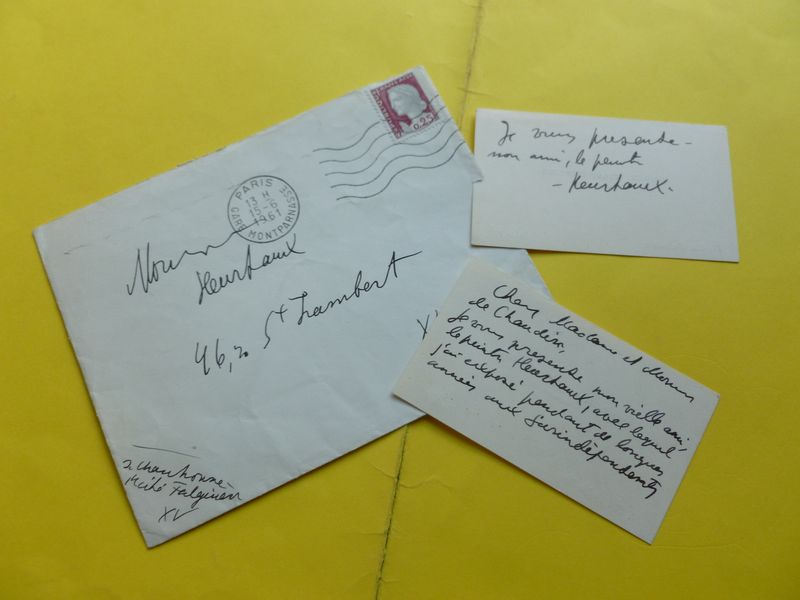 0,25
PARIS
GARE MONTPARNASSE
13 H
15-6
1961
Heurtaux
46, St Lambert
Falguière
XV
Je vous presente
mon ami, le peintre
- Heurtaux.
Chers Madame et Monsieur
de
Je vous presente mon vielle ami,
le peintre Heurtaux, avec lequel
j'ai exposé pendant de longues
années aux Surindépendents